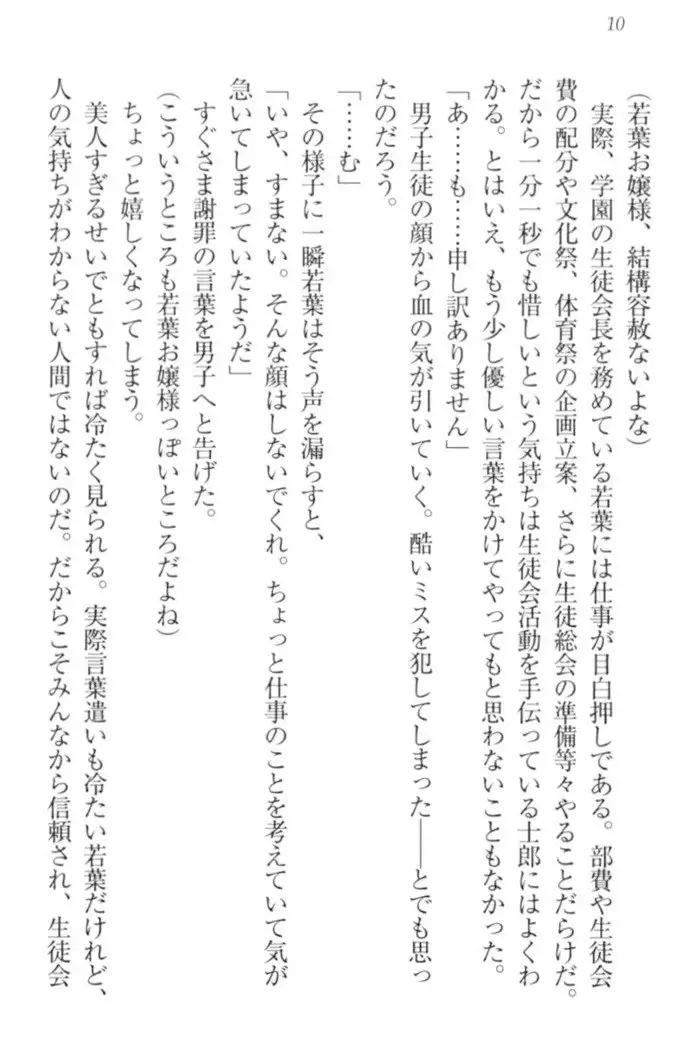 10
(若葉お嬢様、結構容赦ないよな)
実際、学園の生徒会長を務めている若葉には仕事が目白押しである。部費や生徒会
費の配分や文化祭、体育祭の企画立案、さらに生徒総会の準備等々やることだらけだ。
だから一分一秒でも惜しいという気持ちは生徒会活動を手伝っている士郎にはよくわ
かる。とはいえ、もう少し優しい言葉をかけてやってもと思わないこともなかった。
「あ……も……申し訳ありません」
男子生徒の顔から血の気が引いていく。酷いミスを犯してしまった――とでも思っ
たのだろう。
「……む」
その様子に一瞬若葉はそう声を漏らすと、
「いや、すまない。そんな顔はしないでくれ。ちょっと仕事のことを考えていて気が
急いてしまっていたようだ」
すぐさま謝罪の言葉を男子へと告げた。
(こういうところも若葉お嬢様っぽいところだよね)
ちょっと嬉しくなってしまう。
美人すぎるせいでともすれば冷たく見られる。実際言葉遣いも冷たい若葉だけれど、
人の気持ちがわからない人間ではないのだ。だからこそみんなから信頼され、生徒会